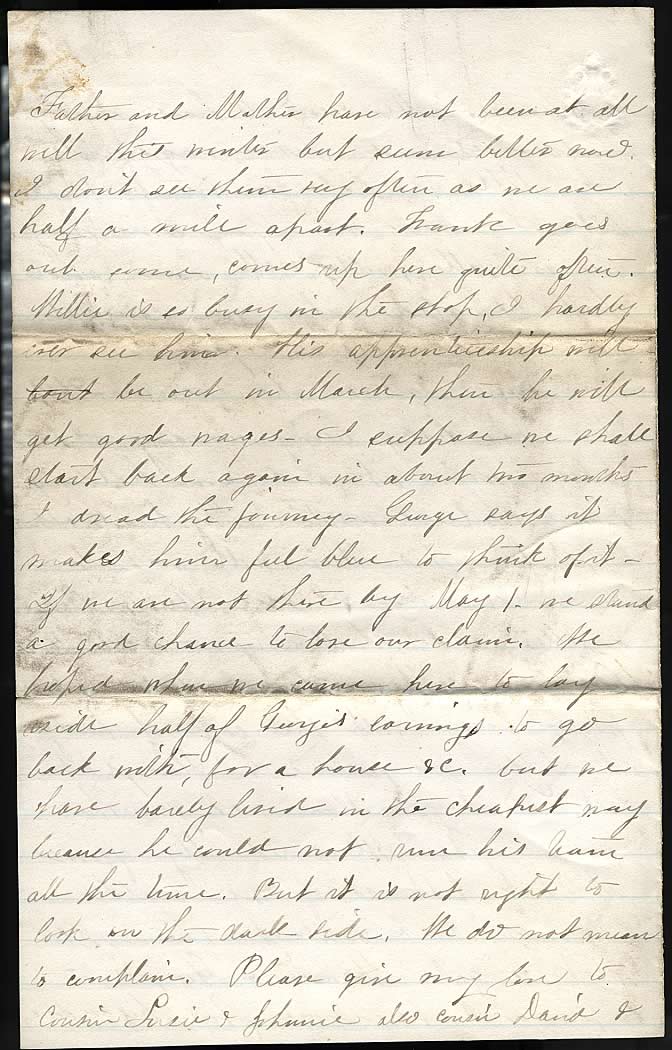 Father and Mother have not been at all
well this winter but seem better now.
I don't see them very often as we are
half a mile apart. Frank goes
out some, comes up here quite often.
Willie is so busy in the shop, I hardly
ever see him. His apprenticeship will
be out in March, then he will
get good wages - I suppose we shall
start back again in about two months
I dread the journey - George says it
makes him feel blue to think of it -
If we are not there by May 1 - we stand
a good chance to lose our claim. We
hoped when we came here to lay
aside half of George's earnings to go
back with, for a house &c. but we
have barely lived in the cheapest way
because he could not run his team
all the time. But it is not right to
look on the dark side. We do not mean
to complain. Please give my love to
Cousin Susie & Johnnie also cousin David &